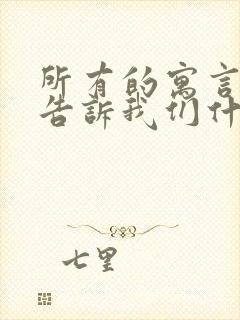 所有的寓言
告訴我们什
七里